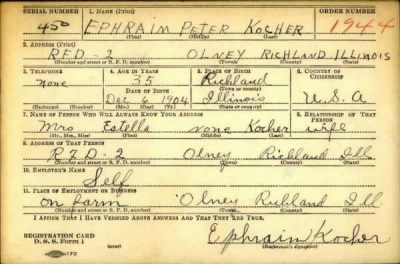 SERIAL NUMBER 1. NAME (Print) ORDER NUMBER
450 EPHRAIM PETER KOCHER 1944
(First) (Middle) (Last)
2. ADDRESS (Print)
RFD-2 OLNEY RICHLAND ILLINOIS
(Number and street or R. F. D. number) (Town) (County) (State)
3. TELEPHONE 4. AGE IN YEARS 5. PLACE OF BIRTH 6. COUNTRY OF CITIZENSHIP
none 35 Richland
DATE OF BIRTH (Town or county)
Dec 6 1904 Illinois U.S.A
(Exchange) (Number) (Mo.) (Day) (Yr.) (State or country)
7. NAME OF PERSON WHO WILL ALWAYS KNOW YOUR ADDRESS 8. RELATIONSHIP OF THAT PERSON
Mrs Estella none Kocher wife
(Mr., Mrs., Miss) (First) (Middle) (Last)
9. ADDRESS OF THAT PERSON
RFD-2 Olney Richland Ill
(Number and street or R. F. D. number) (Town) (County) (State)
10. EMPLOYER'S NAME
Self
11. PLACE OF EMPLOYMENT OR BUSINESS
on farm Olney Richland Ill.
(Number and street or R. F. D. number) (Town) (County) (State)
I AFFIRM THAT I HAVE VERIFIED ABOVE ANSWERS AND THAT THEY ARE TRUE.
Ephraim Kocher
REGISTRATION CARD
D. S. S. Form 1 (over) (Registrant's signature)